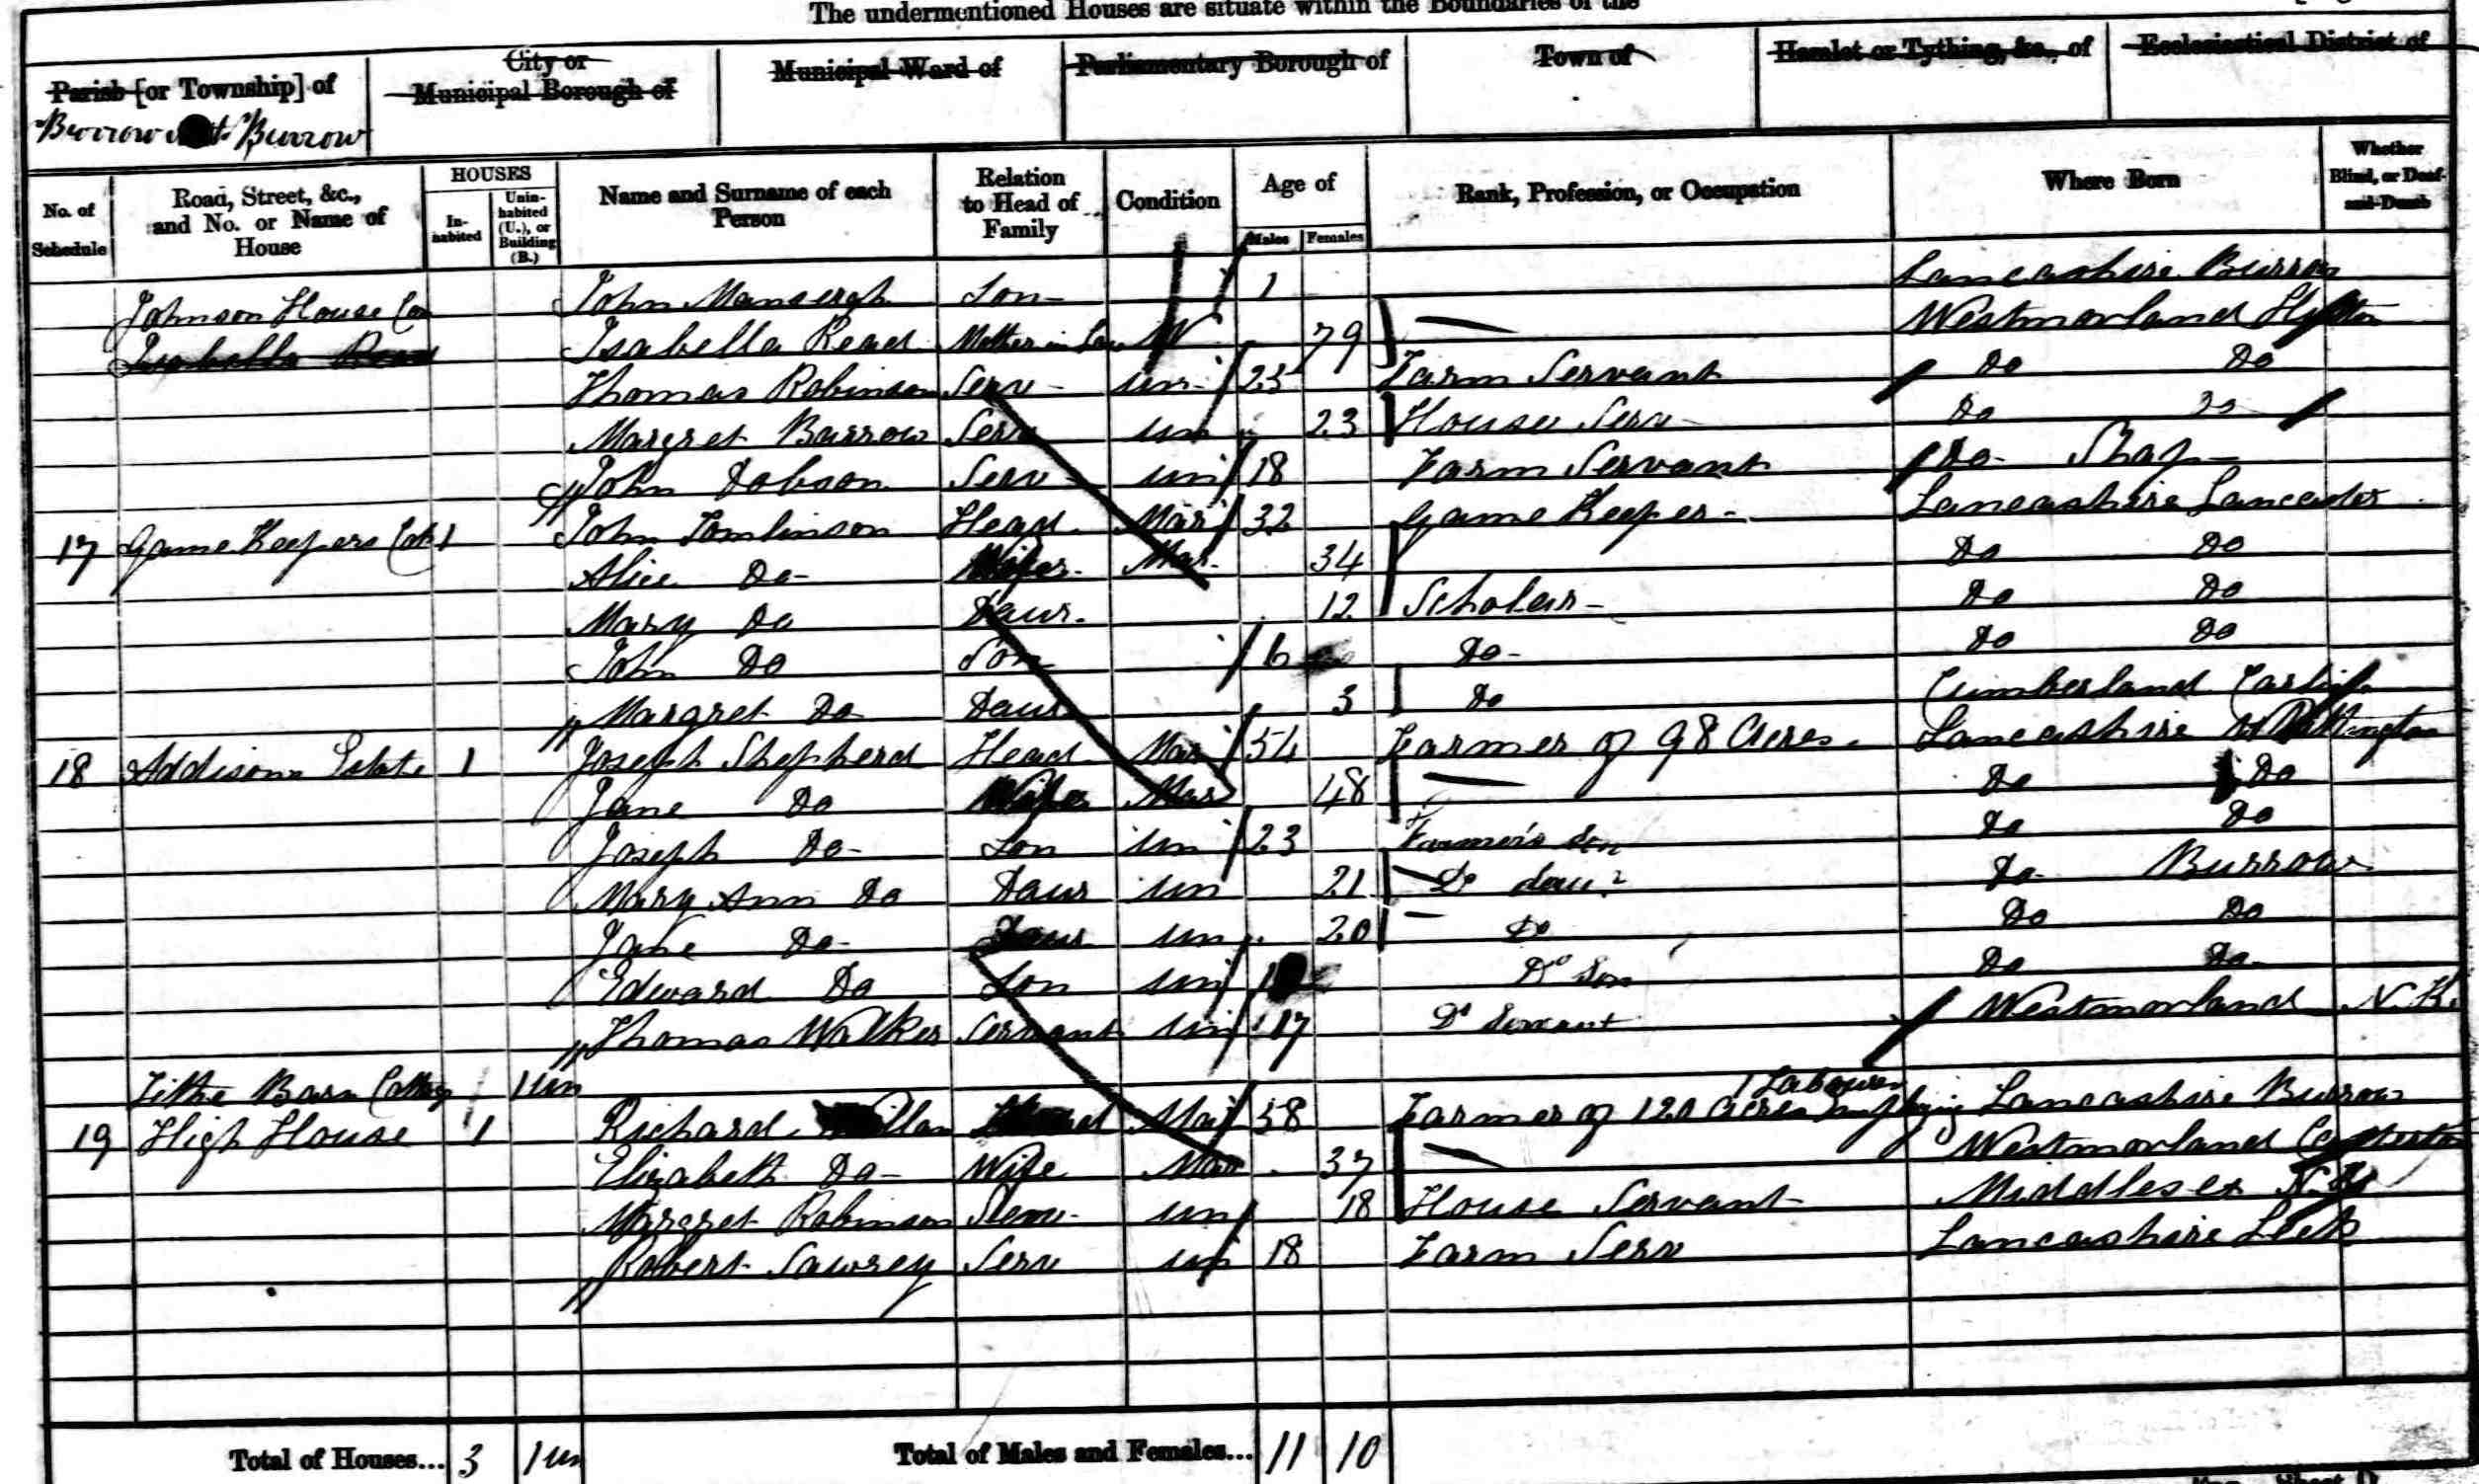 The undermentioned Houses are situate within the Boundaries of the
Parish [or Township] of
City or Municipal Borough of
Municipal Ward of
Parliamentary Borough of
Town of
Hamlet or Tything, &c., of
Ecclesiastical District of
Burrow Burrow
No. of Schedule
Road, Street, &c., and No. or Name of House
HOUSES
In-habited
Unin-habited (U.), or Building (B.)
Name and Surname of each Person
Relation to Head of Family
Condition
Age of
Males Females
Rank, Profession, or Occupation
Where Born
Whether Blind, or Deaf-and-Dumb
Johnson House John Mansergh Son 1 Lancashire Burrow
Isabella Read Isabella Read Mother in Law W 79 Westmorland
Thomas Robinson Serv un 23 Farm Servant Do Do
Margret Burrow Serv un 23 House Serv Do Do
John Dobson Serv un 18 Farm Servant Do Shap
17 Game Keepers Cot 1 John Tomlinson Head Mar 32 Game Keeper Lancashire Lancaster
Alice Do Wife Mar 34 Do Do
Mary Do Daur 12 Scholar Do Do
John Do Son 6 Do Do Do
Margret Do Daur 3 Do Cumberland
18 Addisons 1 Joseph Shepherd Head Mar 54 Farmer of 98 Acres Lancashire
Jane Do Wife Mar 48 Do Do
Joseph Do Son un 23 Farmer's Son Do Do
Mary Ann Do Daur un 21 Do daur Do Burrow
Jane Do Daur un 20 Do Do Do
Edward Do Son un Do Son Do Do
Thomas Walker Servant un 17 Do Servant Westmorland N.K.
Tithe Barn 1 un
19 High House 1 Richard Mar 58 Farmer of 120 Acres employing 1 Labourer Lancashire Burrow
Elizabeth Do Wife Mar 37 Westmorland
Margret Robinson Serv un 18 House Servant Middlesex N.K.
Robert Sawrey Serv un 18 Farm Serv Lancashire Leck
Total of Houses... 3 1 un
Total of Males and Females... 11 10